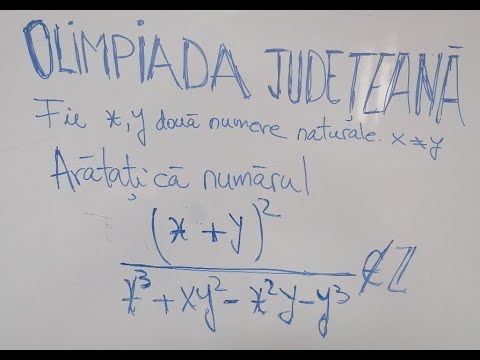 OLIMPIADA JUDEȚEANĂ
Fie x,y două numere naturale. x≠y
Arătați că numărul
(x+y)²
x³+xy²-x²y-y³ ∉Z